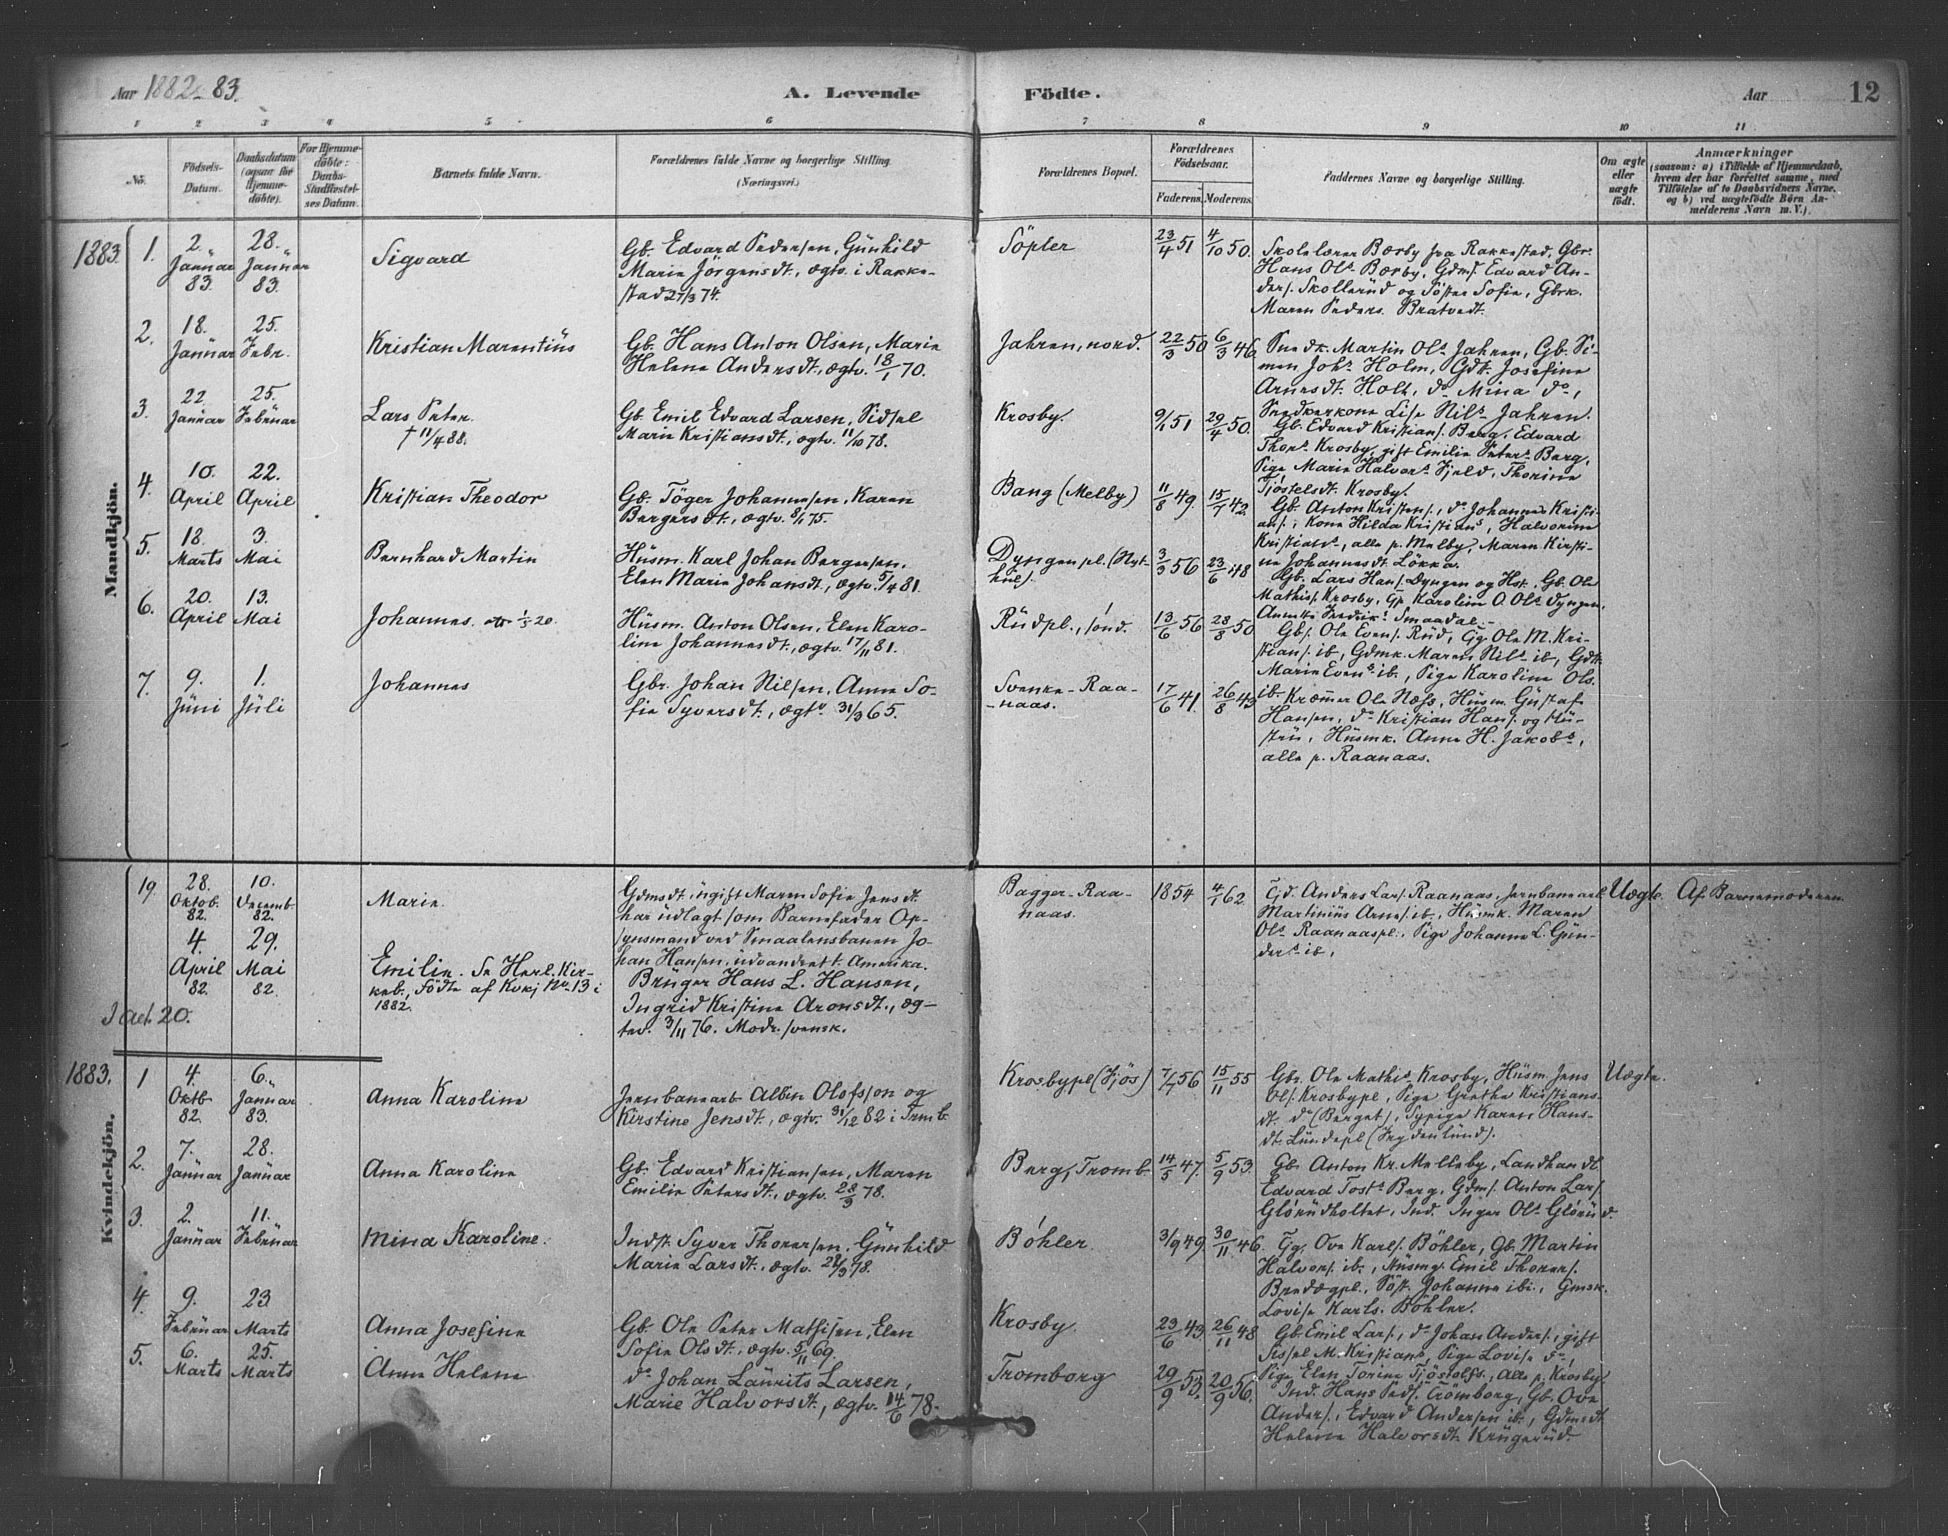 Aar 1882-83.
A. Levende Födte.
Aar 12
1 2 3 4 5 6 7 8 9 10 11
No.
Födsels-Datum.
Daabsdatum (ogsaa for Hjemme-döbte).
For Hjemme-döbte: Daabs-Stadfæstel-ses Datum.
Barnets fulde Navn.
Forældrenes fulde Navne og borgerlige Stilling.
(Næringsvei.)
Forældrenes Bopæl.
Forældrenes Födselsaar.
Faderens. Moderens.
Faddernes Navne og borgerlige Stilling.
Om ægte eller uægte födt.
Anmærkninger
(saasom: a) i Tilfælde af Hjemmedaab,
hvem der har forrettet samme, med
Tilföielse af to Daabsvidners Navne,
og b) ved uægtefödte Börn An-
melderens Navn m. V.).
Mandkjön.
1883. 1. 2. Januar 83. 28. Januar 83.
Sigvard
Gb. Edvard Pedersen, Gunhild
Marie Jörgensdt., ægtv. i Rakke-
stad 27/3 74.
Söpler
23/4 51 4/10 50.
Skolelærer Bærby fra Rakkestad, Gbr.
Hans Ols. Bærby, Gdms. Edvard An-
ders. Skollerud og Söster Sofie, Gbrk.
Maren Peders. Bratvedt.
2. 18. Januar 25. Febr.
Kristian Marentius
Gb. Hans Anton Olsen, Marie
Helene Andersdt., ægtv. 18/1 70.
Jahren, nord.
22/3 50 6/3 46
Snedk. Martin Ols. Jahren, Gb. Si-
men Johs. Holm, Gdt. Josefine
Arnesdt. Holt, do Mina do,
Snedkerkone Lise Nils. Jahren.
3. 22. Januar 25. Februar
Lars Peter.
† 11/4 88.
Gb. Emil Edvard Larsen, Sidsel
Marie Kristiansdt., ægtv. 11/10 78.
Krosby.
9/1 51 29/4 50.
Gb. Edvard Kristians. Berg, Edvard
Thors. Krosby, gift Emilie Peters. Berg,
Pige Marie Halvors. Fjeld, Thorine
Tjöstelsdt. Krosby.
4. 10. April 22. April
Kristian Theodor
Gb. Töger Johannesen, Karen
Bergersdt., ægtv. 8/1 75.
Bang (Melby)
11/8 49. 15/7 42.
Gb. Anton Kristens., do Johannes Kristi-
ans., Kone Hilda Kristians., Halvorine
Kristians., alle p. Melby, Maren Kirsti-
ne Johannesdt. Lökka.
5. 18. Marts 3. Mai
Bernhard Martin
Husm. Karl Johan Bergersen,
Elen Marie Johansdt., ægtv. 5/4 81.
Dyngenpl. (Nyt-
hus).
3/3 56 23/6 48
Gb. Lars Hans. Dyngen og Hst., Gb. Ole
Mathis. Krosby, Gp. Karoline O. Ols. Dyngen,
Annette Fredriks. Smaadal.
6. 20. April 13. Mai
Johannes.
Husm. Anton Olsen, Elen Karo-
line Johannesdt., ægtv. 17/11 81.
Rudpl., sönd.
13/6 56 28/8 50
Gbs. Ole Evens. Rud, Gg. Ole M. Kri-
stians. ib, Gdmk. Maren Nils. ib, Gdt.
Marie Evens. ib., Pige Karoline Ols.
ib.
7. 9. Juni 1. Juli
Johannes
Gbr. Johan Nilsen, Anne So-
fie Syversdt., ægtv. 31/3 65.
Svenke-Raa-
naas.
17/6 41. 26/8 43
Kræmmer Ole Næss, Husm. Gustaf
Hansen, do Kristian Hans. og Hu-
stru, Husmk. Anne H. Jakobs.,
alle p. Raanaas.
Kvindekjön.
19. 28. Oktob. 82. 10. Decemb. 82.
Marie.
Gdmsdt. ugift Maren Sofie Jensdt.
har udlagt som Barnefader Op-
synsmand ved Smaalensbanen Jo-
han Hansen, udvandret t. Amerika.
Bagger-Raa-
naas.
1854 4/1 62.
Gd. Anders Lars. Raanaas, Jernbanearb.
Martinius Arnes. ib., Husmk. Maren
Ols. Raanaaspl., Pige Johanne L. Gun-
ders. ib.
Uægte. Af Barnemoderen.
4. April 82. 29. Mai 82.
Emilie. Se Herl. Kir-
keb., Födte af Kvkj No 13 i
1882.
Bruger Hans L. Hansen,
Ingrid Kristine Aronsdt., æg-
tev. 3/11 76. Modr. svensk.
I alt 20.
1883. 1 4. Oktb. 82. 6. Januar 83.
Anna Karoline
Jernbanearb Albin Olofsson og
Kirstine Jensdt., ægtv. 31/12 82 i Trmb.
Krosbypl. (Fjös)
7/7 56 15/11 55
Gbr. Ole Mathis. Krosby, Husm. Jens
Ols. Krosbypl., Pige Grethe Kristians-
dt. do (Berget), Sypige Karen Hans-
dt. Lundepl. (Frydenlund).
Uægte.
2. 7. Januar 28. Januar
Anna Karoline
Gb. Edvard Kristiansen, Maren
Emilie Petersdt., ægtv. 28/3 78.
Berg, Tromb.
14/5 47. 5/9 53.
Gb. Anton Kr. Melleby, Landhandl.
Edvard Tosts. Berg, Gdms. Anton Lars.
Glörudholtet, Ind. Inger Ols. Glörud.
3. 2. Januar 11. Februar
Mina Karoline.
Indst. Syver Thoresen, Gunhild
Marie Larsdt., ægtv. 28/3 78.
Böhler.
3/9 49. 30/11 46.
Gg. Ove Karls. Böhler, Gb. Martin
Halvors. ib., Husmg. Emil Thores.
Bredægpl., Söst. Johanne ibi., Gmsk.
Lovise Karls. Böhler.
4. 9. Februar 23 Marts
Anna Josefine
Gb. Ole Peter Mathisen, Elen
Sofie Olsdt., ægtv. 5/11 69.
Krosby.
23/6 43. 26/11 48
Gb. Emil Lars., do Johan Anders., gift
Sissel M. Kristians., Pige Lovise do,
Pige Elen Torine Tjöstolfs., Alle p. Krosby.
5. 6. Marts 25. Marts
Anne Helene
do Johan Laurits Larsen,
Marie Halvorsdt., ægtv. 14/6 78.
Tromborg
29/9 53. 20/9 56.
Ind. Hans Peds. Trömborg, Gb. Ove
Anders., Edvard Andersen ib., Gdmsdt.
Helene Halvorsdt. Krugerud.